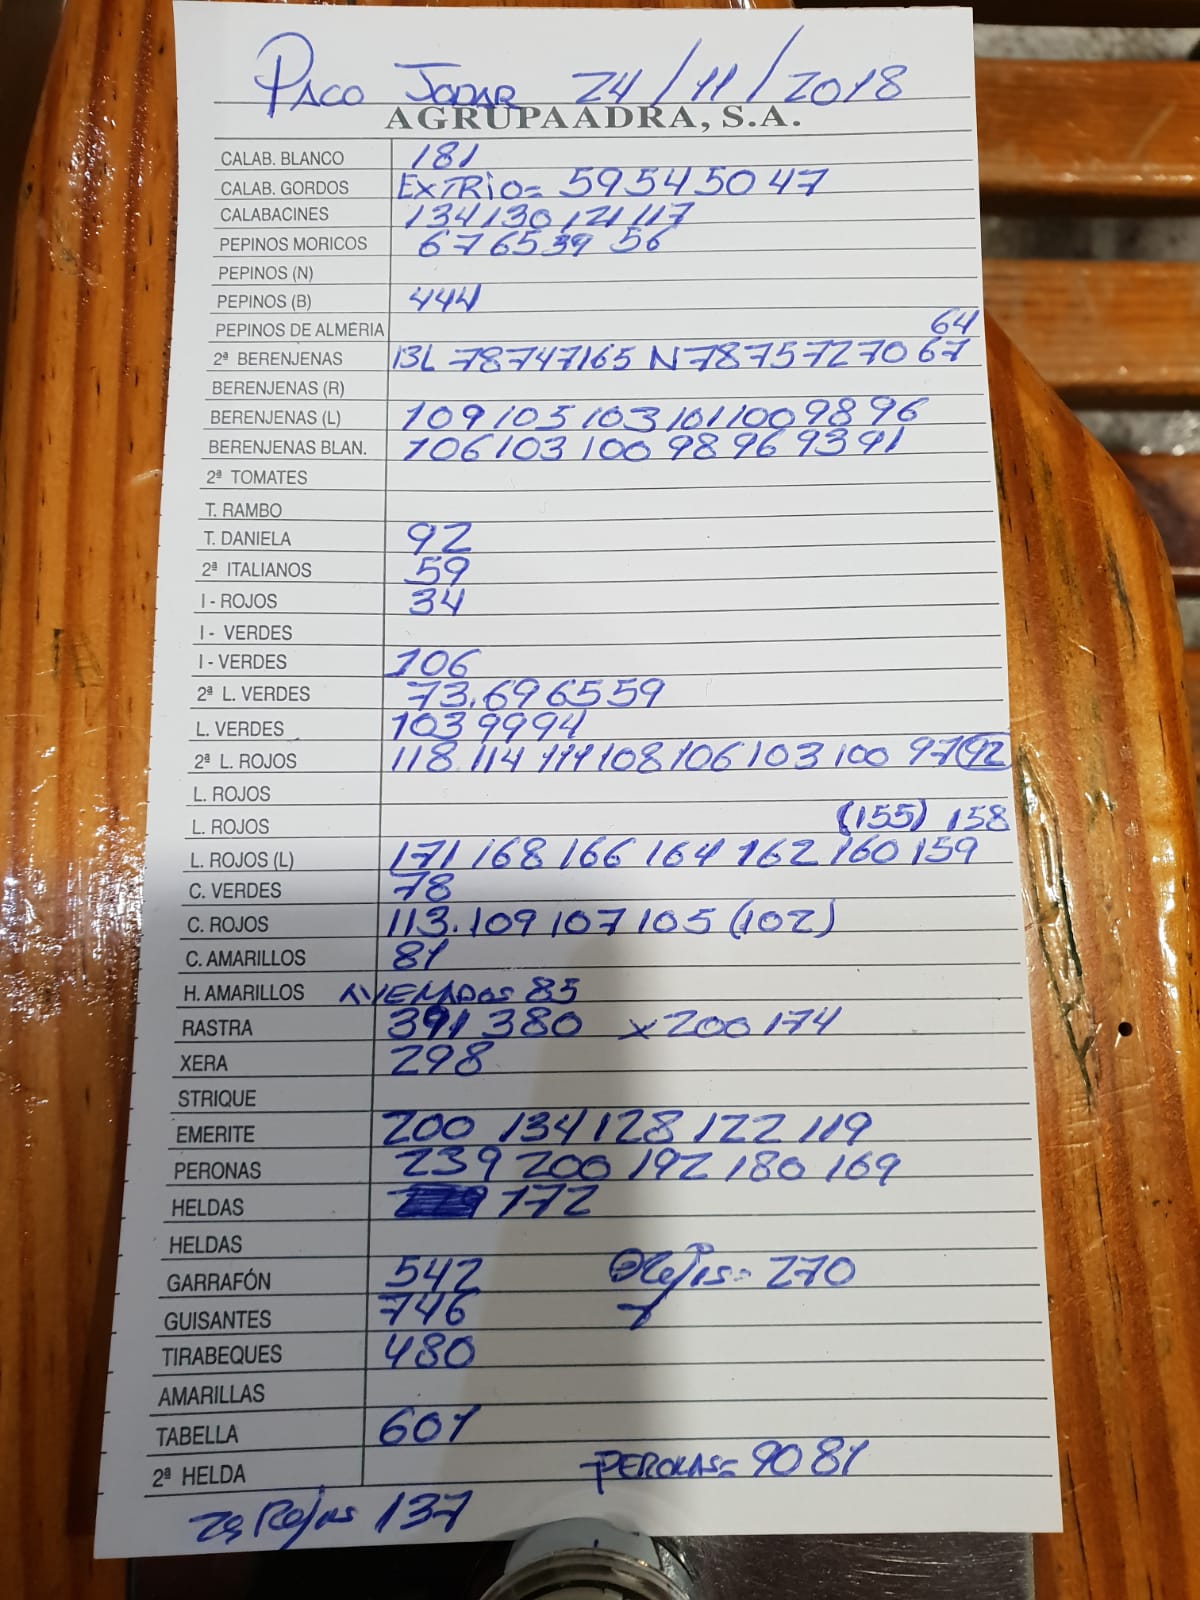 PACO JODAR 24/11/2018
AGRUPAADRA, S.A.
CALAB. BLANCO 181
CALAB. GORDOS EXTRIO= 59 54 50 47
CALABACINES 134 130 121 117
PEPINOS MORICOS 67 65 39 56
PEPINOS (N)
PEPINOS (B) 444
PEPINOS DE ALMERIA 64
2ª BERENJENAS BL 78 74 71 65 N 78 75 72 70 67
BERENJENAS (R)
BERENJENAS (L) 109 105 103 101 100 98 96
BERENJENAS BLAN. 106 103 100 98 96 93 91
2ª TOMATES
T. RAMBO
T. DANIELA 92
2ª ITALIANOS 59
I - ROJOS 34
I - VERDES
I - VERDES 106
2ª L. VERDES 73. 69 65 59
L. VERDES 103 99 94
2ª L. ROJOS 118 114 111 108 106 103 100 97 92
L. ROJOS
L. ROJOS (155) 158
L. ROJOS (L) 171 168 166 164 162 160 159
C. VERDES 78
C. ROJOS 113. 109 107 105 (102)
C. AMARILLOS 81
H. AMARILLOS 85
RASTRA 391 380 x 200 174
XERA 298
STRIQUE
EMERITE 200 134 128 122 119
PERONAS 239 200 192 180 169
HELDAS 172
HELDAS
GARRAFÓN 542 = 270
GUISANTES 746
TIRABEQUES 480
AMARILLAS
TABELLA 601
2ª HELDA PERONAS= 90 81
Rojas 137